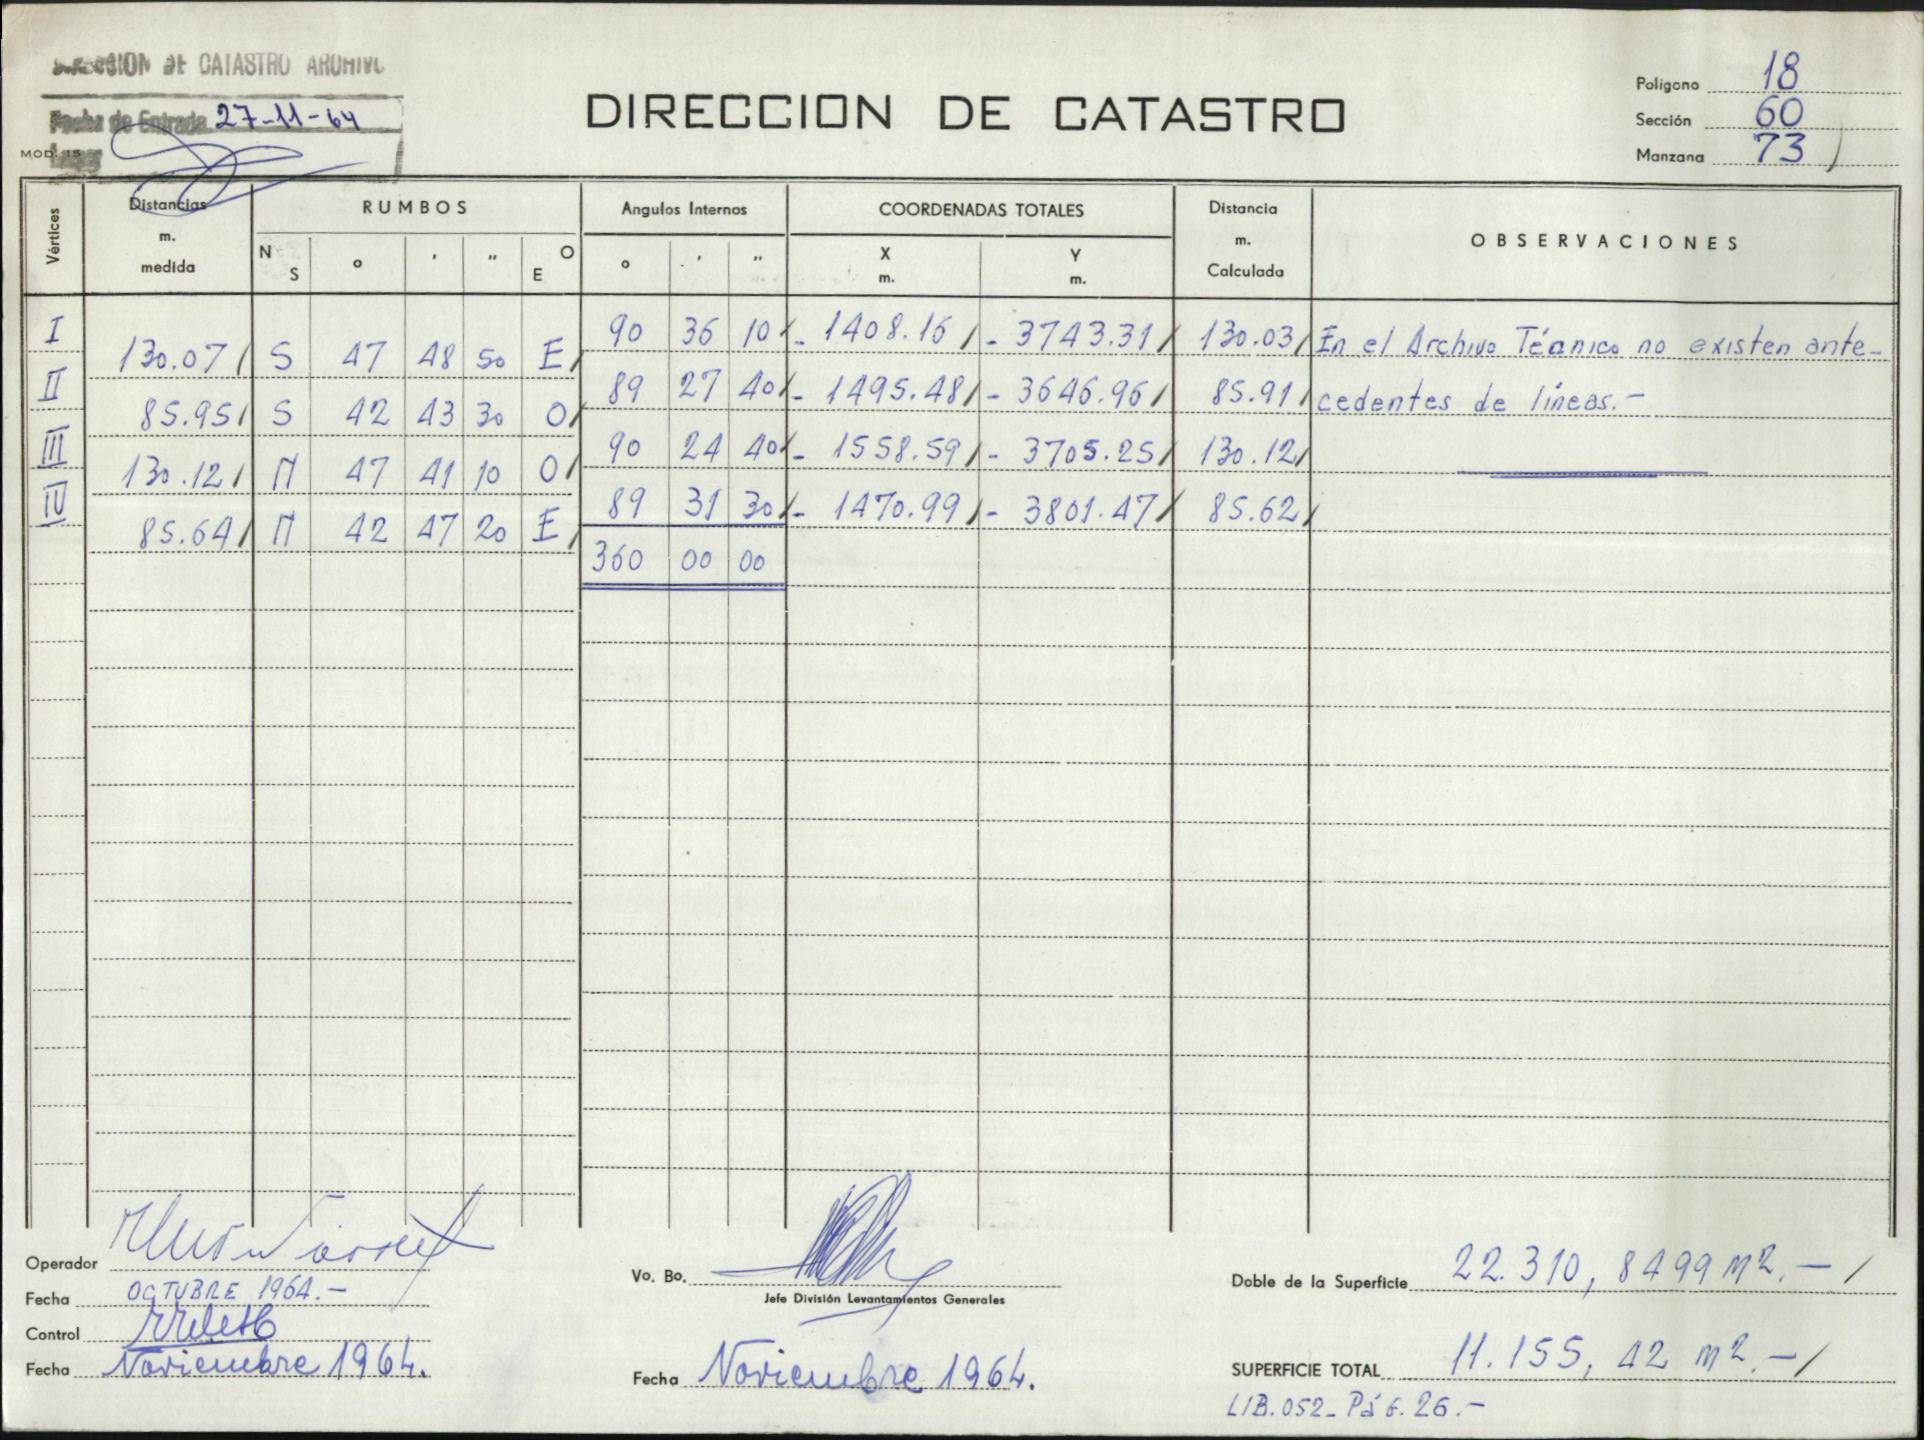 DIRECCION DE CATASTRO ARCHIVO
Fecha de Entrada 27-11-64
MOD. 15
DIRECCION DE CATASTRO
Polígono 18
Sección 60
Manzana 73
Vértices Distancias m. medida RUMBOS Angulos Internos COORDENADAS TOTALES Distancia m. Calculada OBSERVACIONES
N S ° ' " O E ° ' " X m. Y m.
I 90 36 10 - 1408.16 - 3743.31 130.03 En el Archivo Técnico no existen ante-
130.07 S 47 48 50 E
II 89 27 40 - 1495.48 - 3646.96 85.91 cedentes de líneas.-
85.95 S 42 43 30 O
III 90 24 40 - 1558.59 - 3705.25 130.12
130.12 N 47 41 10 O
IV 89 31 30 - 1470.99 - 3801.47 85.62
85.64 N 42 47 20 E
360 00 00
Operador
Fecha OCTUBRE 1964.-
Control
Fecha Noviembre 1964.
Vo. Bo.
Jefe División Levantamientos Generales
Fecha Noviembre 1964.
Doble de la Superficie 22.310,8499 m2.-
SUPERFICIE TOTAL 11.155,42 m2.-
LIB.052-Pág.26.-